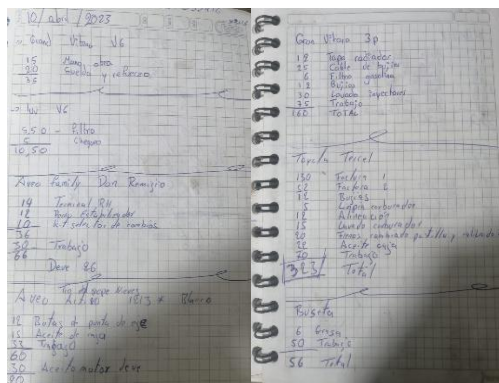 10/abril/2023
Grand Vitara V6
15 Mano obra
20 Suelda y refuerzo
35
Luv V6
5,50 - Filtro
5 Chequeo
10,50
Aveo Family Don Remigio
14 Terminal RH
12
10 Kit selector de cambios
36
30 - Trabajo
66
Debe 86
Aveo Activo 1213 Blanco
12 Puntas de punta de eje
15 Aceite de caja
33 Trabajo
60
30 Aceite motor debe
90
Gran Vitara 3p
12 Tapa radiador
25 Cable de bujias
6 Filtro gasolina
12 Bujias
30 Lavado inyectores
75 Trabajo
160 TOTAL
Toyota Tercel
130 Factura 1
52 Factura 2
12 Bujes
5 carburador
12 Alineación
15 Lavado carburador
20 Frenos, cambiado pastilla y
22 Aceite caja
70 Trabajo
323 Total
Buseta
6 Grasa
50 Trabajo
56 Total